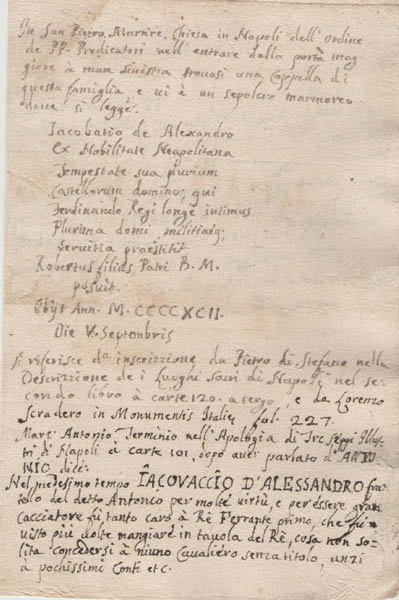 In San Pietro Martire, Chiesa in Napoli dell'ordine
de PP. Predicatori nell'entrare dalla porta mag
giore à man sinistra trovasi una Cappella di
questa famiglia e vi è un sepolcro marmoreo
dove si legge.
Iacobatio de Alexandro
Ex Nobilitate Neapolitana
Tempestate sua plurium
Castellorum domino, qui
Ferdinando Regi longè intimus
Plurima domi militiaq;
Servitia praestitit
Robertus filius Patri B. M.
posuit.
Obijt Ann. M. CCCCXCII.
Die V. Septenbris
si riferisce da inscrizzione da Pietro di Stefano nella
Descrizzione de i Luoghi Sacri di Napoli nel se
condo libro à carte 120. a tergo, e da Lorenzo
Scradero in Monumentis Italie, fol. 227.
Marc' Antonio Terminio nell'Apologia di Tre Seggi Illus
tri di Napoli à carte 101. dopo aver parlato d'ANTO
NIO dice:
Nel medesimo tempo IACOVACCIO D'ALESSANDRO fra
tello del detto Antonio per molte virtù, e per essere gran
cacciatore fù tanto caro à Rè Ferrante primo, che fù
visto più volte mangiare in tavola del Rè, cosa non so
lita concedersi à niuno Cavaliero senza titolo, anzi
a pochissimi Conti etc.